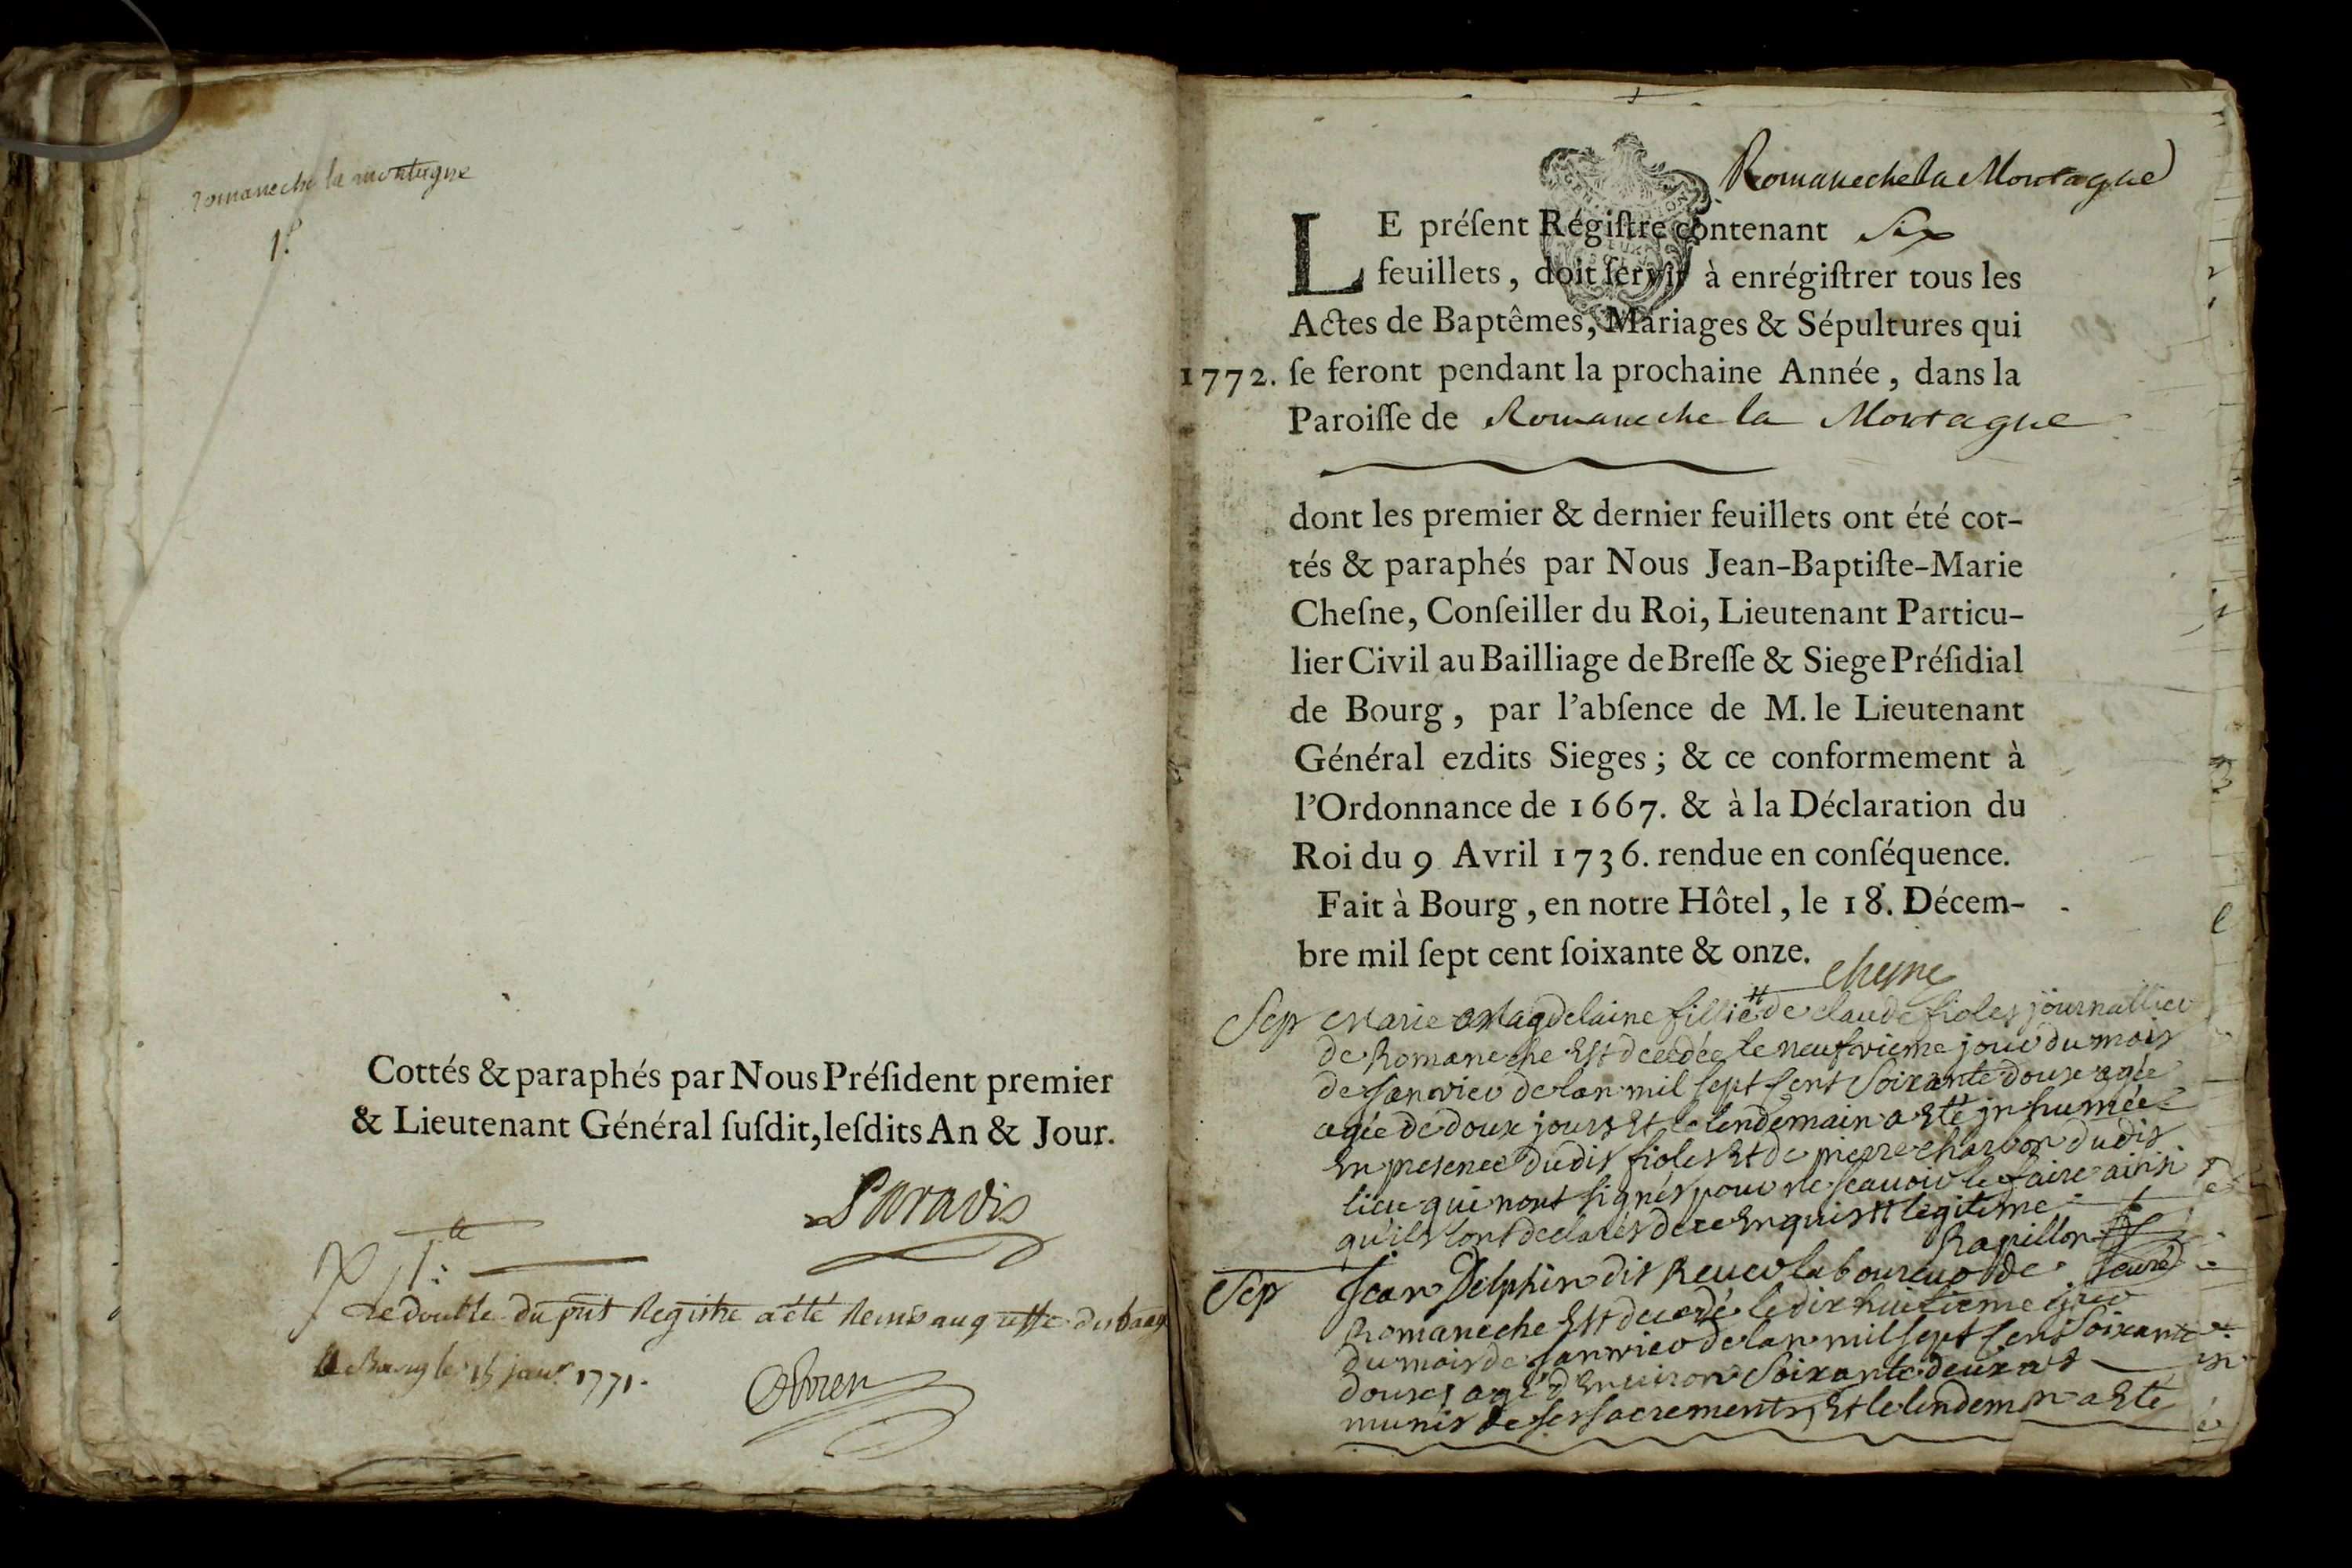 Romaneche la montagne
1.º
Cottés & paraphés par Nous Préſident premier
& Lieutenant Général ſuſdit, leſdits An & Jour.
Paradis
Le double du pnt Registre a été Remis au greffe du baage
de Bourg le 15 janr 1771.
Romaneche la Montagne
LE préſent Régiſtre contenant Six
feuillets, doit ſervir à enrégiſtrer tous les
Actes de Baptêmes, Mariages & Sépultures qui
1772. ſe feront pendant la prochaine Année, dans la
Paroiſſe de Romaneche la Montagne
dont les premier & dernier feuillets ont été cot-
tés & paraphés par Nous Jean-Baptiſte-Marie
Cheſne, Conſeiller du Roi, Lieutenant Particu-
lier Civil au Bailliage de Breſſe & Siege Préſidial
de Bourg, par l'abſence de M. le Lieutenant
Général ezdits Sieges; & ce conformement à
l'Ordonnance de 1667. & à la Déclaration du
Roi du 9 Avril 1736. rendue en conſéquence.
Fait à Bourg, en notre Hôtel, le 18. Décem-
bre mil ſept cent ſoixante & onze.
Chesne
Sep Marie Magdelaine fillie de claude fioles journallier
de Romaneche Est decedée le neufvieme jour du mois
de Janvier de lan mil sept Cent Soixante douse agée
agée de doux jours Et le lendemain a Eté inhumée
En presence dudis fioles Et de pierre charbon dudis
lieu qui nont signés pour ne scavoir le faire ainsi
qu'ils lont declarés de ce Enquis # legitime
Rapillon curé
Sep Jean Delphin dit Reveur laboureur de
Romaneche Est decedé le dix huitieme jour
du mois de Janvier de lan mil sept Cent Soixante
douse, agé d'Environ Soixante deux ans
munis de ses sacrements, Et le lendemain a Eté